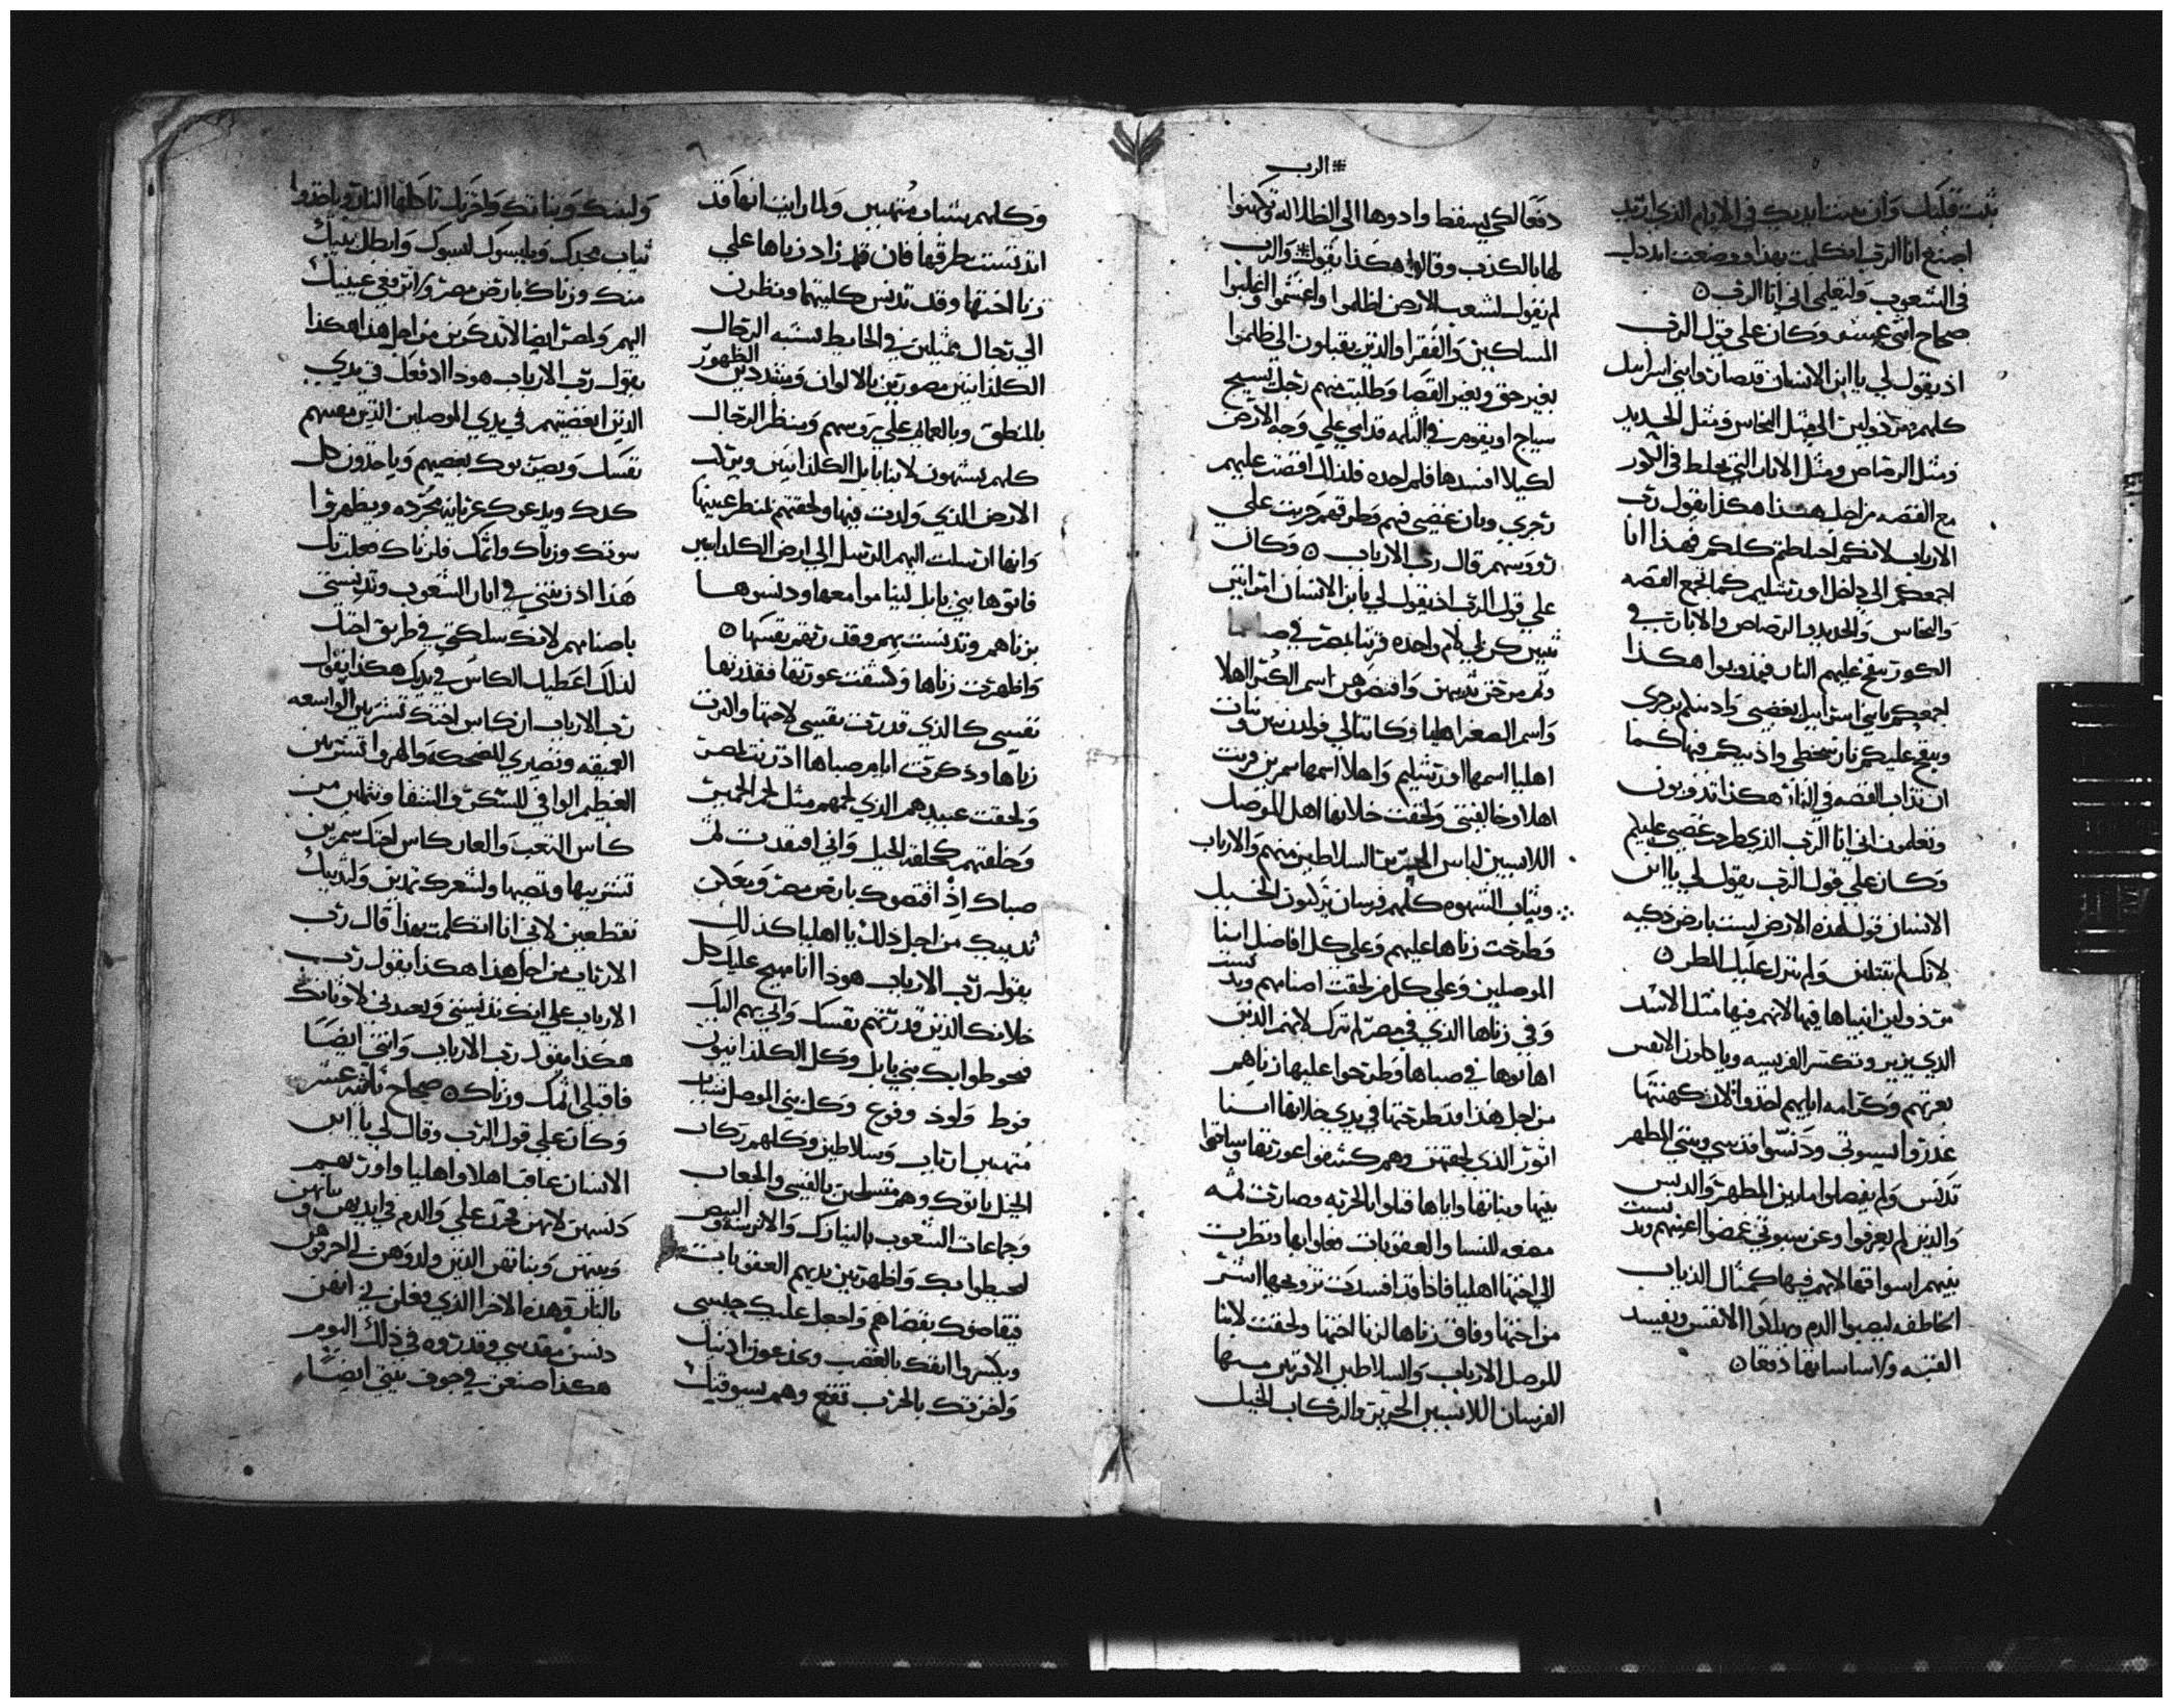 ثبت قلبك وان ثبتت ايديك في الايام الذي اريد
اصنع انا الرب اتكلمت بهذا ووضعت ابددك
في الشعوب ولتعلمي اني انا الرب
صحاح اثني عشر وكان علي قول الرب
اذ يقول لي يا ابن الانسان قد صار وابني اسراييل
كلهم من ذو لين الي مثل النحاس ومثل الحديد
ومثل الرصاص ومثل الاناب التي يخلط في الكور
مع الفضه من اجل هذا هكذا يقول رب
الارباب لانكم اختلطتم كلكم فهذا انا
اجمعكم الي داخل اورشليم كما تجمع الفضه
والنحاس والحديد والرصاص والاناب في
الكور ينفخ عليهم النار فيذوبوا هكذا
اجمعكم يا بني اسراييل بغضبي
وينفخ عليكم نار سخطي واذيبكم فيها كما
ان تذاب الفضه في النار هكذا تذوبون
وتعلمون اني انا الرب الذي طرحت غضبي عليكم
وكان علي قول الرب يقول لي يا ابن
الانسان قول لهذه الارض ليست بارض زكيه
لانك لم تبتلين ولم ينزل عليك المطر
انبياها فيها لانهم فيها مثل الاسد
الذي يزير وتكسر الفريسه وياكلون الانفس
بعزتهم وكرامه اياهم اخذوا لان كهنتها
غدروا لسنوتي ودنسوا قدسي وبيتي المطهر
تدنس ولم يفصلوا ما بين المطهر والدنس
والذين لم يعرفوا وعن سبوتي غمضوا اعينهم وتدنست
بينهم اسواقها لانهم فيها كمثال الذياب
الخاطفه ليصبوا الدم ويهلكوا الانفس
الفتنه واساساتها دفعا
* الرب
دفعا لكي يسقط وادوها الي الظلاله وتكهنوا
لها بالكذب وقالوا هكذا يقول * والرب
لم يقول لشعب الارض اظلموا واغشموا اغلبوا
المساكين والفقرا والذين يقبلون الي ظلموا
بغير حق وبغير القضا وطلبت منهم رجل يسيج
سياج او يقوم في الثلمه قدامي علي وجه الارض
لكيلا افسدها فلم اجده فلذلك افضت عليهم
رجزي وبان غضبي فيهم وطرقهم جزيت علي
روسهم قال رب الارباب وكان
علي قول الرب اذ يقول لي يا ابن الانسان امراتين
ثنتين كن لي لام واحده فزنتا بمصر في صباهما
وثم مرخن ثديهن وافتضوهن اسم الكبري اهلا
واسم الصغرا اهليا وكانتا لي فولدن بنين وبنات
اهليا اسمها اورشليم واهلا اسمها سمرين فزنت
اهلا وخالفتني ولحقت خلانها اهل الموصل
اللابسين لباس الحرير السلاطين منهم والارباب
وثياب الشهوه كلهم فرسان يركبون الخيل
وطرحت زناها عليهم وعلي كل افاضل ابنا
الموصلين وعلي كل من لحقت اصنامهم وتدنست
وفي زناها الذي في مصر لم تترك لانهم الذين
اهانوها في صباها وطرحوا عليها زناهم
من اجل هذا قد طرحتها في يدي خلانها ابنا
اثور الذي لحقتهن وهم كشفوا عورتها وساقوا
بنيها وبناتها واياها قتلوا بالحربه وصارت ثمه
مضغه للنسا والعقوبات فعلوا بها ونظرت
الي اختها اهليا فاذا قد افسدت تزويجها اشر
من اختها وفاق زناها لزنا اختها ولحقت لابنا
الموصل الارباب والسلاطين الاقربين منها
الفرسان اللابسين الحرير والركاب الخيل
وكلهم بشبان منتهيين ولما رايت انها قد
اتدنست بطرقها فان قد زاد زناها علي
زنا اختها وقد تدنس كليتهما ونظرت
الي رجال ممثلين في الحايط يشبه الرجال
الكلدانيين مصورين بالالوان ومشددين الظهور
بالمنطق وبالعمايم علي روسهم ومنظر الرجال
كلهم يشبهون لابنا بابل الكلدانيين
الارض الذي ولدت فيها ولحقتهم لمنظر عينيها
وانها ارسلت اليهم الرسل الي ارض الكلدانيين
فاتوها بني بابل ليناموا معها ودنسوها
بزناهم وتدنست بهم وقد نفسها
واظهرت زناها وكشفت عورتها فقذرتها
نفسي كالذي قذرت نفسي لاختها واكثرت
زناها وذكرت ايام صباها اذ زنت بمصر
ولحقت عبيدهم الذي لحمهم مثل لحم الحمير
وخلقتهم كخلقة الخيل واني افتقدت ثم
صباك اذ افتضوك بارض مصر
ثدييك من اجل ذلك يا اهليا كذلك
يقول رب الارباب هوذا انا مهيج عليك كل
خلانك الذين قذرتهم نفسك واتي بهم اليك
فيحوطوا بك بني بابل وكل الكلدانيون
فوط ولود وفوع وكل بني الموصل شباب
منتهيين ارباب وسلاطين وكلهم ركاب
الخيل ياتوك وهم متسلحين بالقسي والجعاب
وجماعات الشعوب بالنيازك والاترسه والبيض
لحيطوا بك واظهر بين يديهم العقوبات
فيقاصوك بقضاهم واجعل عليك حبسي
ويكسروا انفك بالغضب ويجدعون اذنيك
واخرتك بالحرب تقع وهم يسوقوك
ولبنيك وبناتك واخرتك تاكلها النار وياخذوا
ثياب مجدك ويلبسوك لبسوك وابطل بذيك
منك وزناك بارض مصر ولا ترفعي عينيك
اليهم ولمصر ايضا لا تذكرين من اجل هذا هكذا
يقول رب الارباب هوذا ادفعك في يدي
الذين ابغضتيهم في يدي الموصلين الذين مقتهم
نفسك ويصنعوك ببغضهم وياخذون كل
كدك ويدعوك عريانه مجرده ويظهروا
سوتك وزناك واثمك فلزناك فعلت بك
هذا اذ زنيتي في اثار الشعوب وتدنستي
باصنامهم لانك سلكتي في طريق اختك
لذلك اعطيك الكاس في يدك هكذا يقول
رب الارباب ان كاس اختك تشربين الواسعه
العميقه وتصيري للضحكه والهزوا تشربين
العظيم الوافي للسكر والشقا وتمتلين من
كاس التعب والعار كاس اختك سمرين
تشربيها وتمصيها ولشعرك تمدين ولثدييك
تقطعين لاني انا اتكلمت بهذا قال رب
الارباب من اجل هذا هكذا يقول رب
الارباب علي انك نسيتني
هكذا يقول رب الارباب وانتي ايضا
فاقبلي اثمك وزناك صحاح ثالثه عشر
وكان علي قول الرب وقال لي يا ابن
الانسان عاقب اهلا واهليا واوريهم
دنسهن لانهن فجرت علي والدم في ايديهن
وبنيهن وبناتهن الذين ولدوهن لي احرقوهن
بالنار وهذه الاخرا الذي فعلن لي ايضا
دنسن مقدسي وقذروه في ذلك اليوم
هكذا صنعن في جوف بيتي ايضا